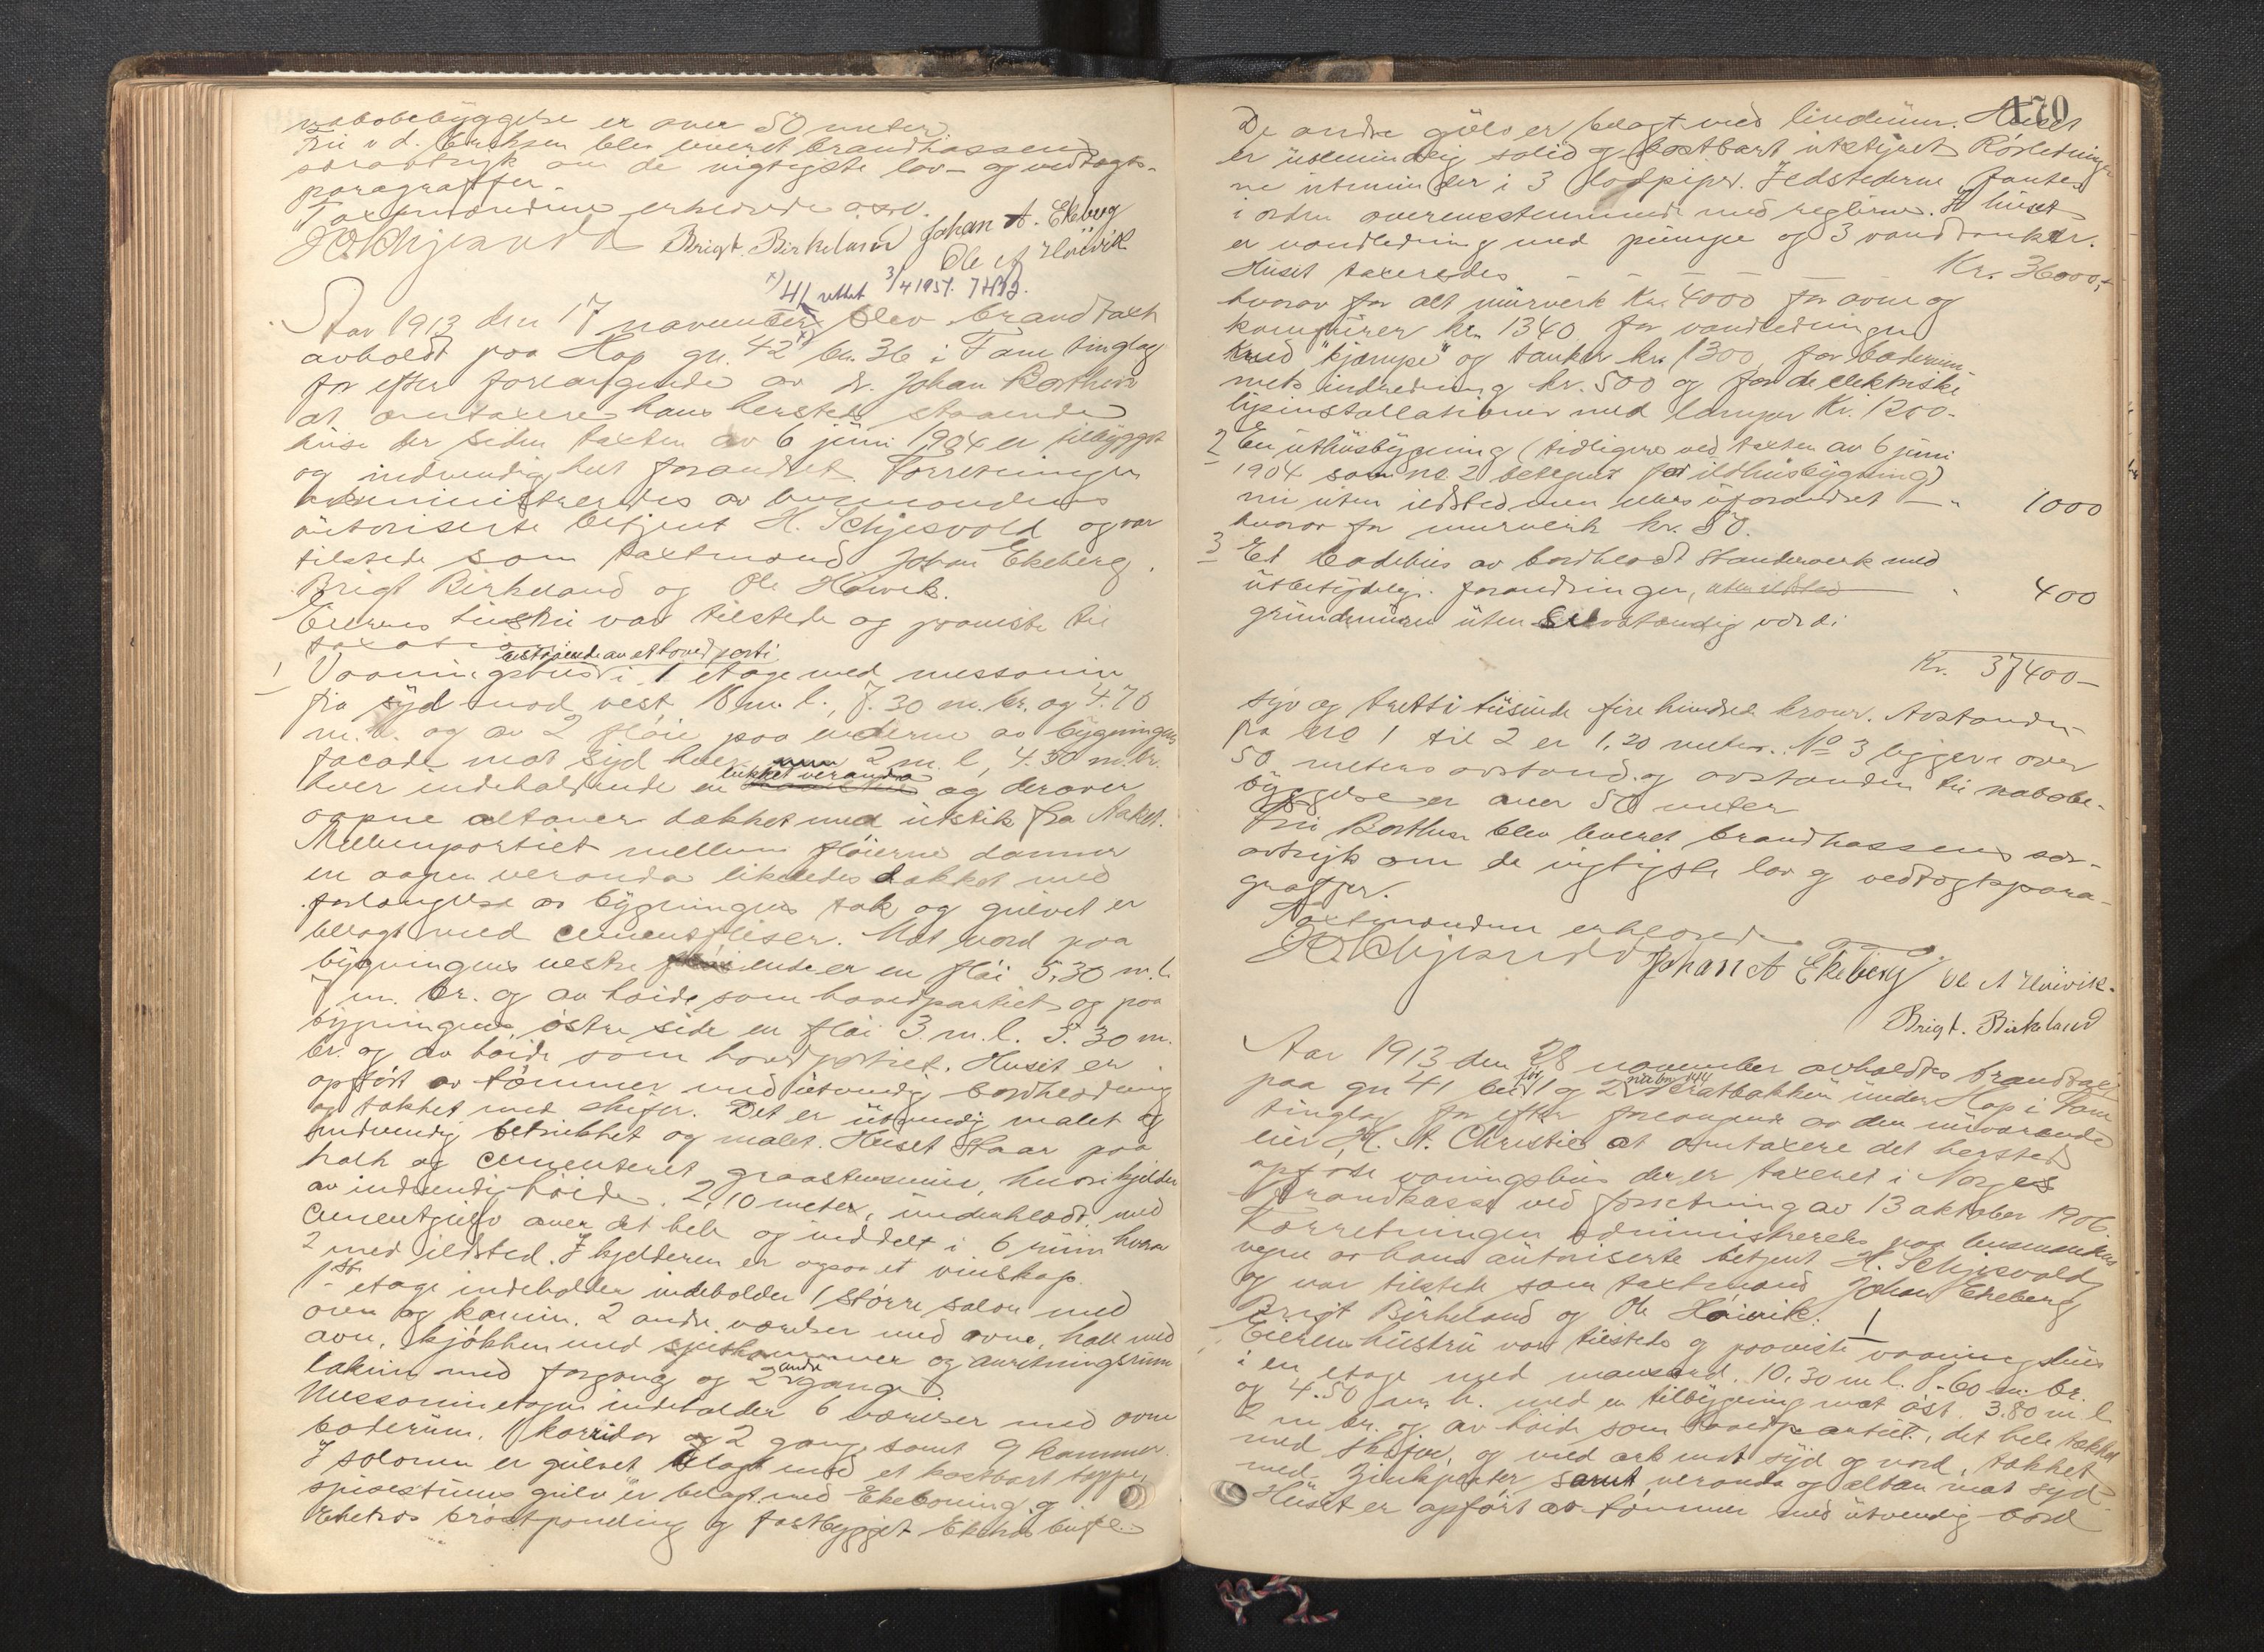 nabobebyggelse er over 50 meter.
Fru v d. Eriksen blev leveret brandkassens
særavtryk om de vigtigste lov- og vedtægts-
paragraffer.
Taxtmændene erklærede osv.
HSchjesvold Brigt. Birkeland Johan A. Ekeberg
Ole A Høivik
x) 41 rettet 3/4 1951.
Aar 1913 den 17 november blev brandtaxt
avholdt paa Hop gn. 42 x) bn. 36 i Fane tinglag
for efter forlangende av dr. Johan Borthen
at omtaxere hans hersteds staaende
huse der siden taxten av 6 juni 1904 er tilbygget
og indvendig helt forandret. Forretningen
administreredes av lensmandens
autoriserte betjent H. Schjesvold og var
tilstede som taxtmænd Johan Ekeberg,
Brigt Birkeland og Ole Høivik.
Eierens hustru var tilstede og paaviste til
taxation
bestaaende av et hovedparti
1 Vaaningshus i 1 etage med messanin
fra syd mod vest, 18 m. l., 7.30 m. br. og 4.70
m. h. og av 2 fløie paa enderne av bygningens
facade mot syd hver 2 m. l, 4.30 m. br.
lukket veranda
hver indeholdende en og derover
aapne altaner dækket med utstik fra taket.
Mellempartiet mellem fløierne danner
en aapen veranda likeledes dækket med
forlængelse av bygningens tak og gulvet er
belagt med cementfliser. Mot nord paa
bygningens vestre ende er en fløi 5.30 m. l.
7 m. br. og av høide som hovedpartiet og paa
bygningens østre side en fløi 3 m. l. 5.30 m.
br. og av høide som hovedpartiet. Huset er
opført av tømmer med utvendig bordklædning
og tækket med skifer. Det er utvendig malet og
indvendig betrukket og malet. Huset staar paa
kalk og cementeret graastensmur, hvori kjelder
av indvendig høide 2,10 meter, underklædt, med
cementgulv over det hele og inddelt i 6 rum hvorav
2 med ildsted. I kjelderen er ogsaa et vinskap.
1ste etage indeholder indeholder 1 større salon med
ovn og kamin. 2 andre værelser med ovne, hall med
ovn, kjøkken med spiskammer og anretningsrum
lakum med forgang og 2 andre gange.
Messaninetagen indeholder 6 værelser med ovne
baderum, 1 korridor og 2 gange samt 9 kammer.
I salonen er gulvet belagt med et kostbart teppe,
spisestuens gulv er belagt med Ekeboning og
Eketræs brøstpaneling og fastbygget Eketræs buffet.
170
De andre gulv er belagt med linoleum. Huset
er usedvanlig solid og kostbart utstyret Rørledninger
ne utmunder i 3 lodpiper. Ildstederne fantes
i orden overensstemmende med reglerne. I huset
er vandledning med pumpe og 3 vandtanker.
Huset taxeredes — — — Kr. 36000,-
hvorav for alt murverk Kr. 4000 for ovne og
komfurer kr. 1340 for vandledningen
med "kjæmpe" og tanker kr. 1300, for baderum-
mets indredning kr. 500 og for de elektriske
lysinstallationer med lamper Kr. 1200.
2 En uthusbygning (tidligere ved taxten av 6 juni
1904 som no 2 betegnet for ildhusbygning)
nu uten ildsted men ellers uforandret — " 1000
hvorav for murverk kr. 50.
3 Et badehus av bordklædt standerverk med
ubetydelig. forandringer, uten ildsted " 400
grundmuren uten selvstændig værdi
Kr. 37400-
syv og tretti tusinde fire hundrede kroner. Avstanden
fra No 1 til 2 er 1,20 meter. No 3 ligger i over
50 meters avstand og avstanden til nabobe-
byggelse er over 50 meter
Fru Borthen blev leveret brandkassens sær-
avtryk om de vigtigste lov og vedtægtspara-
graffer.
Taxtmændene erklærede osv.
HSchjesvold Johan A Ekeberg Ole A Høivik.
Brigt. Birkeland
Aar 1913 den 28 november avholdtes brandtaxt
for nu bn 144
paa gn 41 bn 1 og 2 Brætbakken under Hop i Fane
tinglag for efter forlangende av den nuværende
eier H. A. Christie at omtaxere det hersteds
opførte vaaningshus der er taxeret i Norges
Brandkasse ved forretning av 13 oktober 1906.
Forretningen administreredes paa lensmandens
vegne av hans autoriserte betjent H. Schjesvold
og var tilstede som taxtmænd Johan Ekeberg
Brigt Birkeland og Ole Høivik.
1
Eierens hustru var tilstede og paaviste vaaningshus
i en etage med mansard. 10,30 m l. 8.60 m. br.
og 4.50 m. h. med en tilbygning mot øst 3.80 m l.
2 m br. og av høide som hovedpartiet, det hele tækket
med skifer, og med ark mot syd og nord, tækket
med Zinkplater, samt veranda og altan mot syd.
Huset er opført av tømmer med utvendig bord